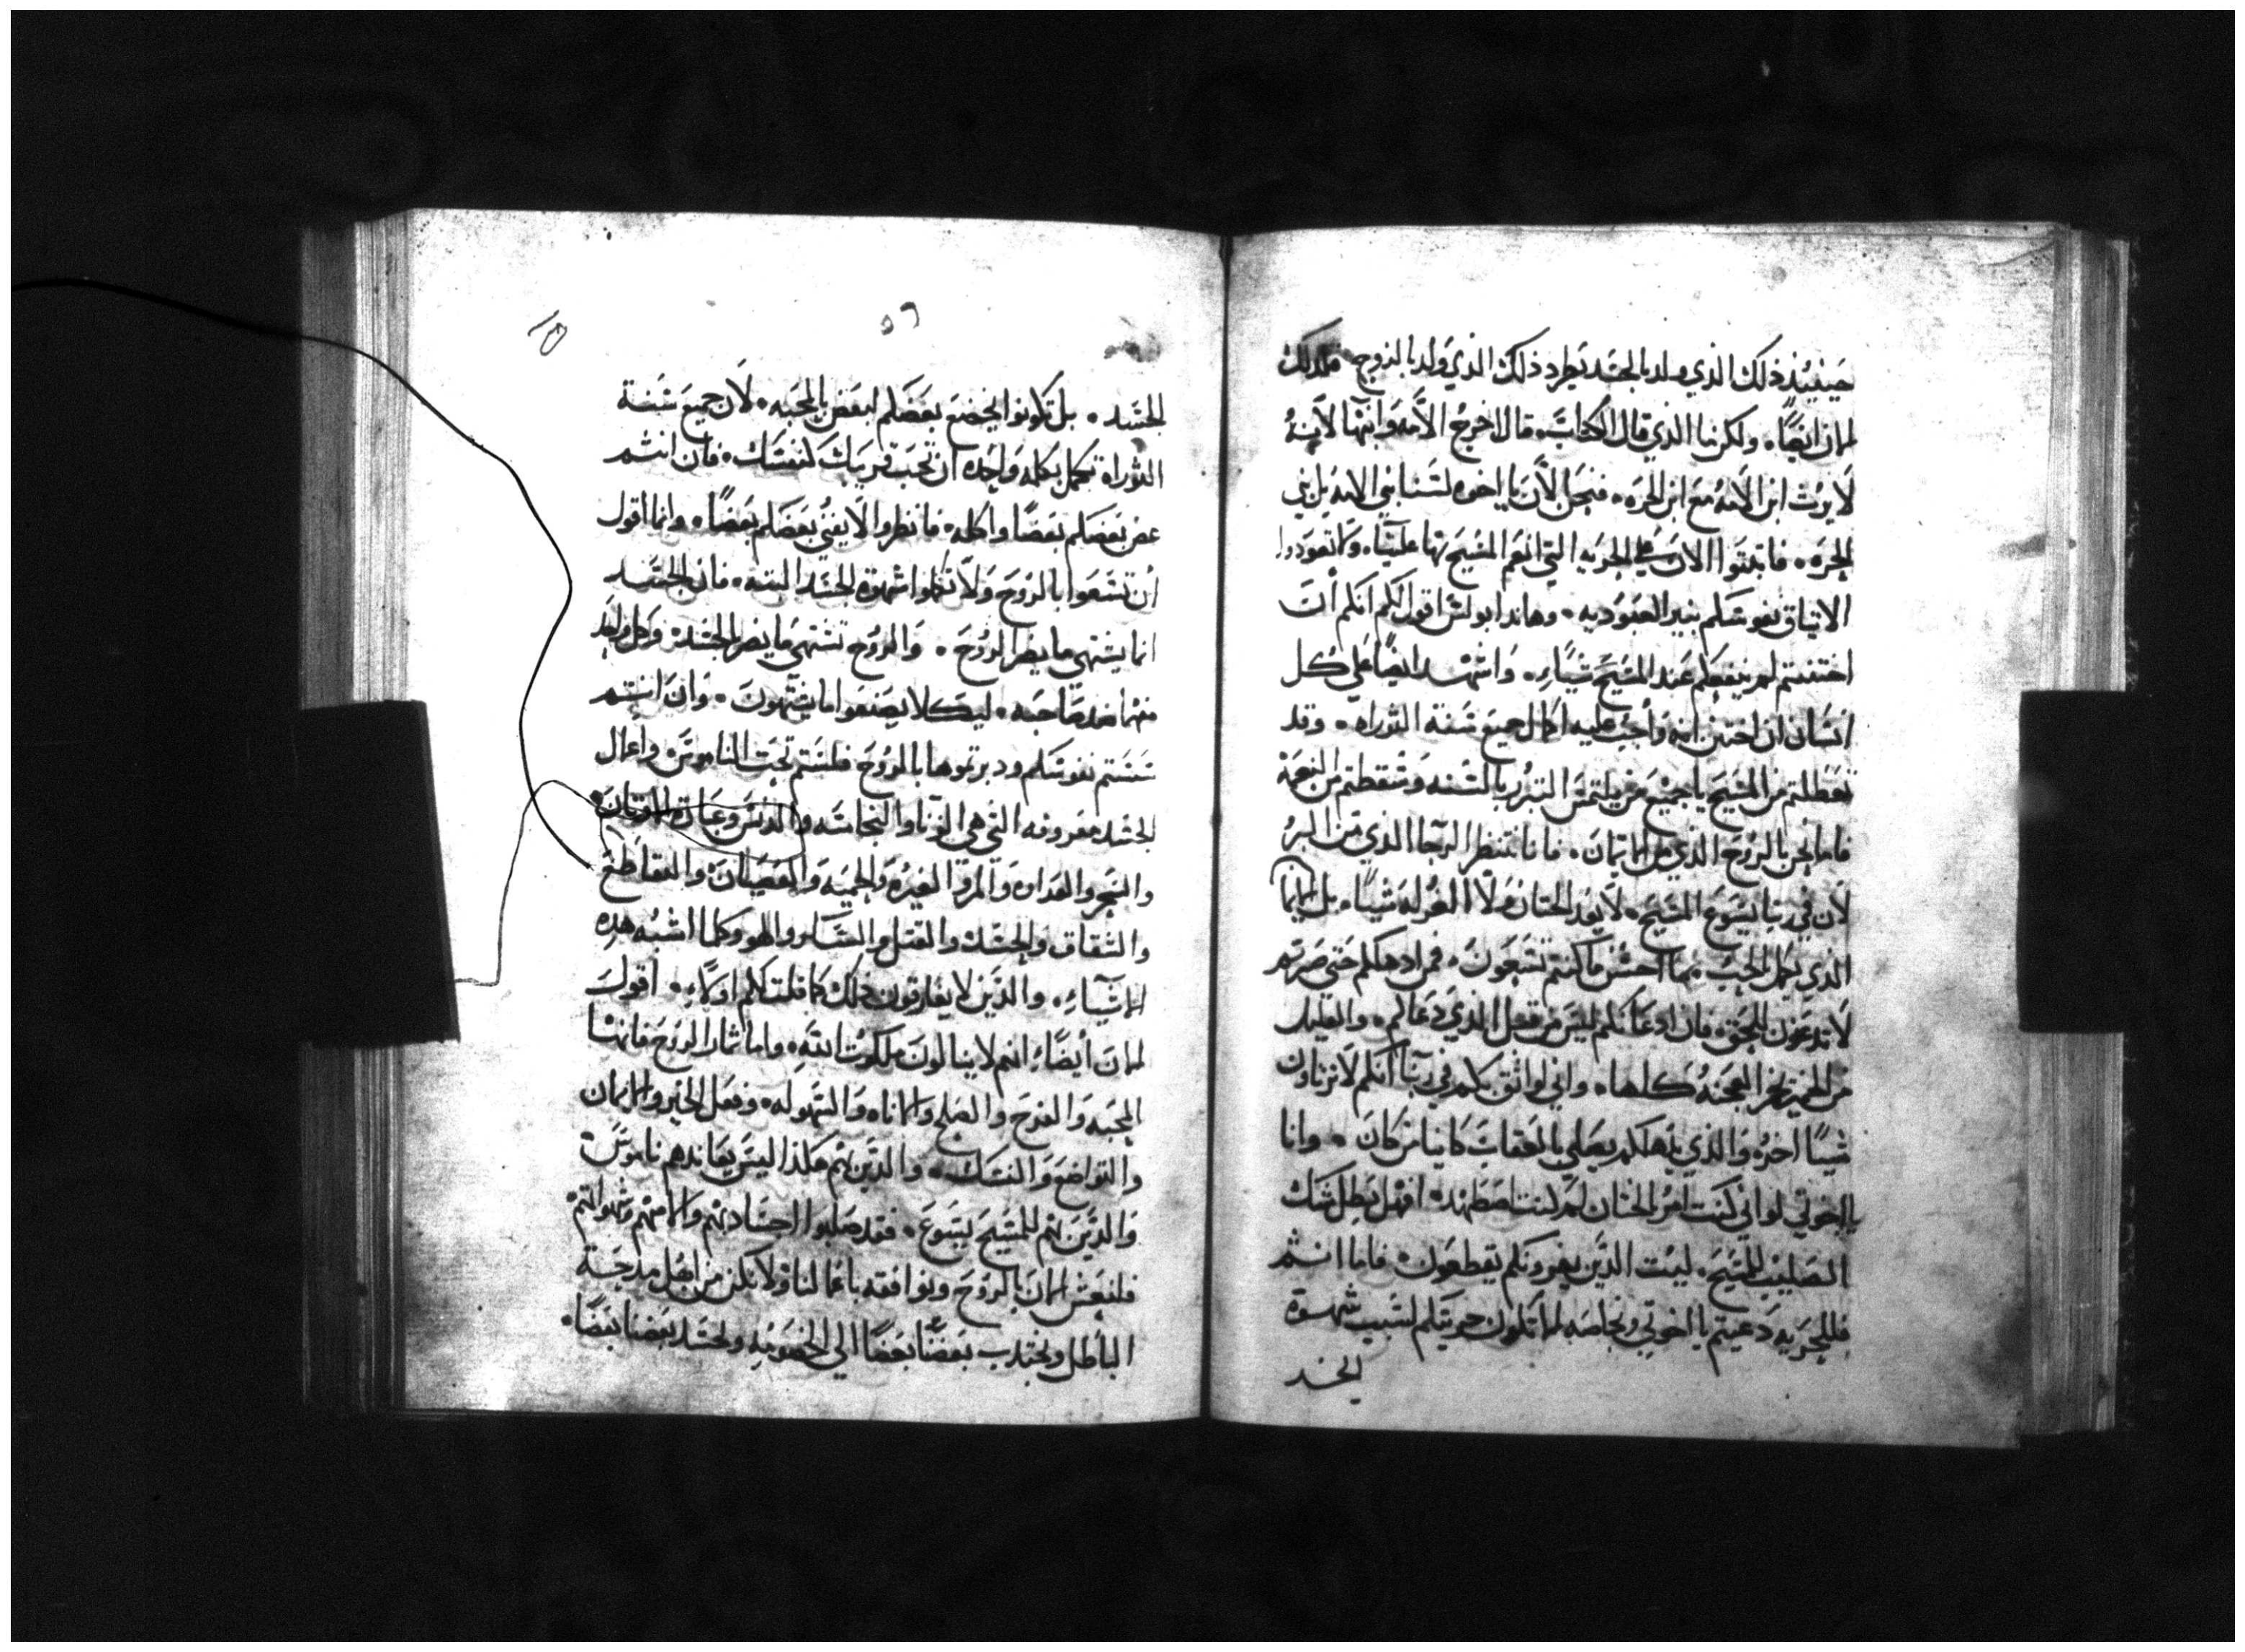 حينيذ ذلك الذي ولد بالجسد يطرد ذلك الذي ولد بالروح فكذلك
الان ايضًا. ولكن ما الذي قال الكتاب. قال اخرج الامه وابنها لانه
لا يرث ابن الامه مع ابن الحره. فنحن الان يا اخوه لسنا بني الامه بل بني
الحره. فاثبتوا الان علي الحريه التي انعم المسيح بها علينا. ولا تعودوا
الايثاق نفوسكم بنير العبوديه. وهاندا بولس اقول لكم انكم ان
اختتنتم لم ينفعكم عند المسيح شياء. واشهد ايضًا علي كل
انسان ان اختتن انه واجب عليه اكمال جميع سنة التوراه. وقد
تعطلتم من المسيح يا جميع من يلتمس التبرر بالسنه وسقطتم من النعمة
فاما نحن بالروح الذي من الايمان. فانا ننتظر الرجا الذي من البر
لان في ربنا يسوع المسيح. لا يعد الختان ولا الغرله شيًا. بل الايما
الذي يكمل بالحب. فما احسن ما كنتم تسعون. فمن ادهاكم حتي صرتم
لا تدعنون للحق. فان ادعانكم ليس من قبل الذي دعاكم. والقليل
من الخمير يخمر العجنة كلها. واني لواثق بكم في ربنا انكم لا ترتاون
شيًا اخر. والذي يدهلكم يصلي بالعقاب كاينا من كان. وانا
يا اخوتي لو اني كنت امر الختان لم كنت اضطهد. افهل بطل شك
الصليب للمسيح. ليت الذين يغرونكم يقطعون. فاما انتم
فللحريه دعيتم يا اخوتي وبخاصه لا تكون حريتكم لسبب شهوة
الجسد
٥٦
الجسد. بل كونوا يخضع بعضكم لبعض بالمحبه. لان جميع سنة
التوراة تكمل بكلمه واحده ان تحب قريبك كنفسك. فان انتم
عض بعضكم بعضًا واكله. فانظروا لا يفني بعضكم بعضًا. وانما اقول
أن تسعوا بالروح ولا تكملوا شهوة الجسد البته. فان الجسد
انما يشتهي ما يضر الروح. والروح تشتهي ما يضر الجسد. وكل واحد
منهما ضد صاحبه. ليكلا يصنعوا ما يشتهون. وان انتم
سستم نفوسكم ودبرتوها بالروح فلستم تحت الناموس واعمال
الجسد معروفه التي هي الزنا والنجاسه والدنس وعبادة الاوثان
والسحر والعداوه والمرا الغيره والحميه والعصيان والتقاطع
والشقاق والحسد والقتل والسكر واللهو وكلما اشبه هده
الاشياء. والذين لا يفارقون ذلك كما قلت لكم اولاء. اقول
الان أيضًا انهم لا ينالون ملكوت الله. واما ثمار الروح فانها
المحبه والفرح والصلح والاناه والسهوله. وفعل الخير والايمان
والتواضع والنسك. والذين هم هكذا ليس يعاندهم ناموس
والذين هم للمسيح يسوع. فقد صلبوا اجسادهم والامهم وشهواتهم
فلنعش الان بالروح ونوافقه باعمالنا ولا نكن من اهل مدحة
الباطل ونجتدب بعضنا بعضًا الي الخصومه ونحسد بعضنا بعضًا.